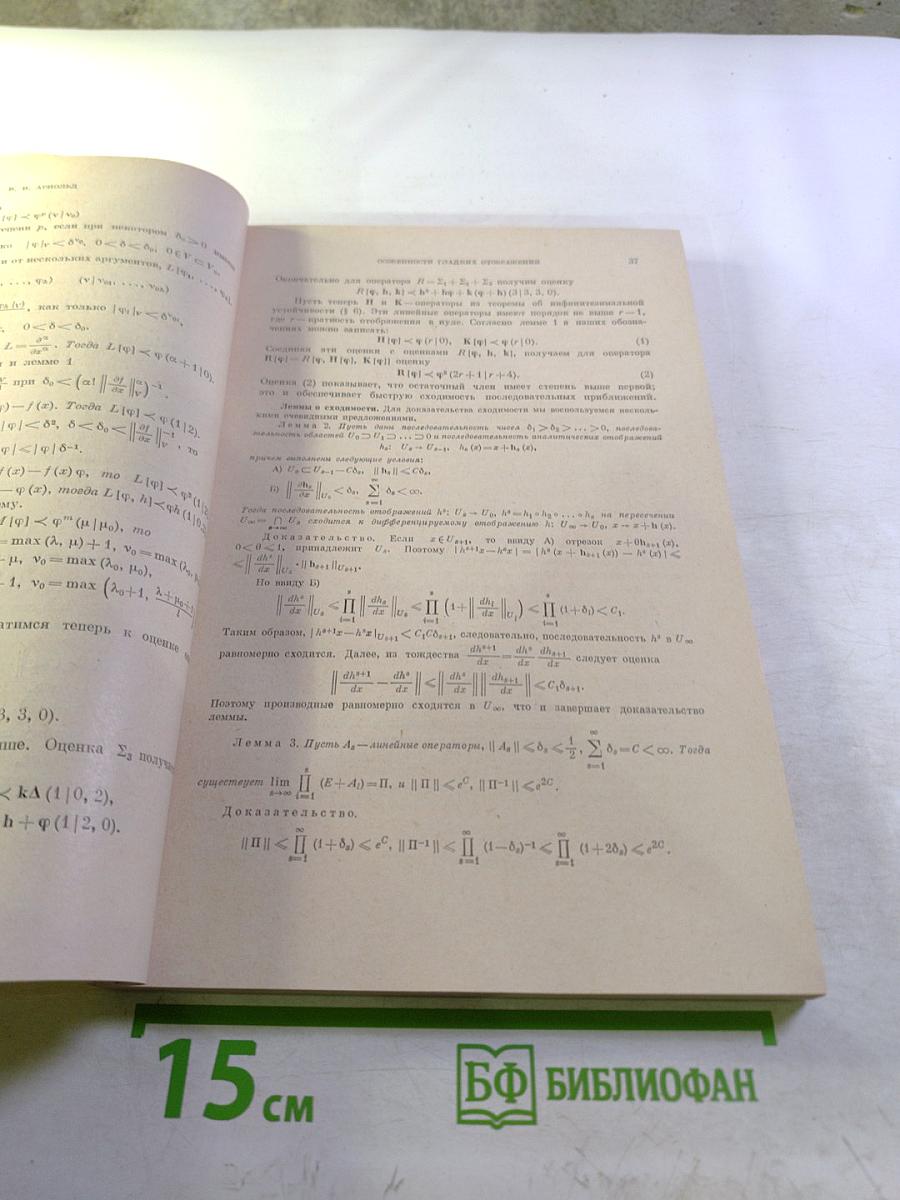 В. И. АРНОЛЬД
[φ] ≺ φᵖ (ν | ν₀)
если при некотором δ₀ > 0
|φ|ᵥ < δ^ν₀, 0 < δ < δ₀, 0 ∈ V ⊂ V₀,
от нескольких аргументов, L [φ₁, . . ., φₖ],
. . ., φₖ) (ν | ν₀₁, . . ., ν₀ₖ)
как только |φᵢ|ᵥ < δ^ν₀ᵢ,
0 < δ < δ₀.
L = ∂^α/∂x^α. Тогда L [φ] ≺ φ (α + 1 | 0).
и лемме 1
при δ₀ <
) — f (x). Тогда L [φ] ≺ φ (1 | 2).
|φ| < δ², δ < δ₀ < ‖∂f/∂x‖ᵥ⁻¹, то
|φ| ≤ |φ| δ⁻¹.
f (x) — f (x) φ, то L [φ] ≺ φ² (1 | 2
— φ (x), тогда L [φ, h] ≺ φh (1 | 0,
ому.
M [φ] ≺ φᵐ (μ | μ₀), то
= max (λ, μ) + 1, ν₀ = max (λ₀, μ
+ μ, ν₀ = max (λ₀, μ₀),
+ 1, ν₀ = max (λ₀ + 1, λ + μ₀ + 1
атимся теперь к оценке
3, 3, 0).
ше. Оценка Σ₃ получа
≺ kΔ (1 | 0, 2),
h + φ (1 | 2, 0).
ОСОБЕННОСТИ ГЛАДКИХ ОТОБРАЖЕНИЙ 37
Окончательно для оператора R = Σ₁ + Σ₂ + Σ₃ получим оценку
R [φ, h, k] ≺ h² + hφ + k (φ + h) (3 | 3, 3, 0).
Пусть теперь H и K — операторы из теоремы об инфинитезимальной
устойчивости (§ 6). Эти линейные операторы имеют порядок не выше r — 1,
где r — кратность отображения в нуле. Согласно лемме 1 в наших обозна-
чениях можно записать:
H [φ] ≺ φ (r | 0), K [φ] ≺ φ (r | 0). (1)
Соединяя эти оценки с оценками R [φ, h, k], получаем для оператора
R [φ] = R [φ, H [φ], K [φ]] оценку
R [φ] ≺ φ² (2r + 1 | r + 4). (2)
Оценка (2) показывает, что остаточный член имеет степень выше первой;
это и обеспечивает быструю сходимость последовательных приближений.
Леммы о сходимости. Для доказательства сходимости мы воспользуемся несколь-
кими очевидными предложениями.
Лемма 2. Пусть даны последовательность чисел δ₁ > δ₂ > . . . > 0, последова-
тельность областей U₀ ⊃ U₁ ⊃ . . . ⊃ 0 и последовательность аналитических отображений
hₛ: Uₛ → Uₛ₋₁, hₛ (x) = x + hₛ (x),
причем выполнены следующие условия:
А) Uₛ ⊂ Uₛ₋₁ — Cδₛ, ‖hₛ‖ ≤ Cδₛ,
Б) ‖∂hₛ/∂x‖_Uₛ < δₛ, ∑_{s=1}^∞ δₛ < ∞.
Тогда последовательность отображений hˢ: Uₛ → U₀, hˢ = h₁ ∘ h₂ ∘ . . . ∘ hₛ на пересечении
U∞ = ∩_{s→∞} Uₛ сходится к дифференцируемому отображению h: U∞ → U₀, x → x + h (x).
Доказательство. Если x ∈ Uₛ₊₁, то ввиду А) отрезок x + θhₛ₊₁ (x),
0 < θ < 1, принадлежит Uₛ. Поэтому | hˢ⁺¹x — hˢx | = | hˢ (x + hₛ₊₁ (x)) — hˢ (x) | ≤
≤ ‖dhˢ/dx‖_Uₛ · ‖hₛ₊₁‖_Uₛ₊₁.
Но ввиду Б)
‖dhˢ/dx‖_Uₛ ≤ ∏_{i=1}^s ‖dhₛ/dx‖_Uₛ ≤ ∏_{i=1}^s (1 + ‖dhᵢ/dx‖_Uᵢ) ≤ ∏_{i=1}^s (1 + δᵢ) < C₁.
Таким образом, | hˢ⁺¹x — hˢx |_Uₛ₊₁ < C₁Cδₛ₊₁, следовательно, последовательность hˢ в U∞
равномерно сходится. Далее, из тождества dhˢ⁺¹/dx = dhˢ/dx dhₛ₊₁/dx следует оценка
‖dhˢ⁺¹/dx — dhˢ/dx‖ ≤ ‖dhˢ/dx‖ ‖dhₛ₊₁/dx‖ ≤ C₁δₛ₊₁.
Поэтому производные равномерно сходятся в U∞, что и завершает доказательство
леммы.
Лемма 3. Пусть Aₛ — линейные операторы, ‖Aₛ‖ ≤ δₛ ≤ 1/2, ∑_{s=1}^∞ δₛ = C < ∞. Тогда
существует lim_{s→∞} ∏_{i=1}^s (E + Aᵢ) = Π, и ‖Π‖ ≤ e^C, ‖Π⁻¹‖ ≤ e^{2C}.
Доказательство.
‖Π‖ ≤ ∏_{s=1}^∞ (1 + δₛ) ≤ e^C, ‖Π⁻¹‖ ≤ ∏_{s=1}^∞ (1 — δₛ)⁻¹ ≤ ∏_{s=1}^∞ (1 + 2δₛ) ≤ e^{2C}.
15 см
БФ БИБЛИОФАН